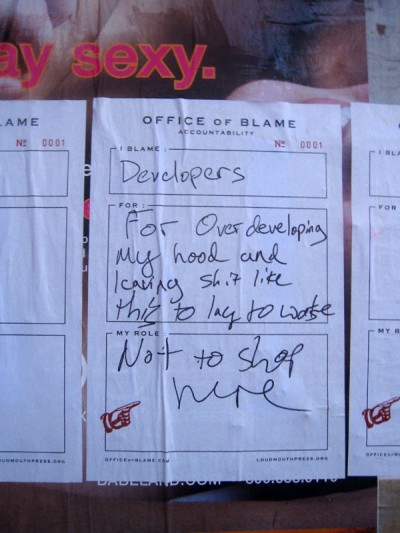 ay sexy.
LAME
Nº 0001
OFFICE OF BLAME
ACCOUNTABILITY
Nº 0001
I BLAME :
Developers
FOR :
For Overdeveloping
my hood and
leaving shit like
this to lay to waste
MY ROLE
Not to shop
here
OFFICEOFBLAME.COM LOUDMOUTHPRESS.ORG
I BLA
FOR
MY R
OFFICE
OUDMOUTHPRESS.ORG
BABELAND.COM